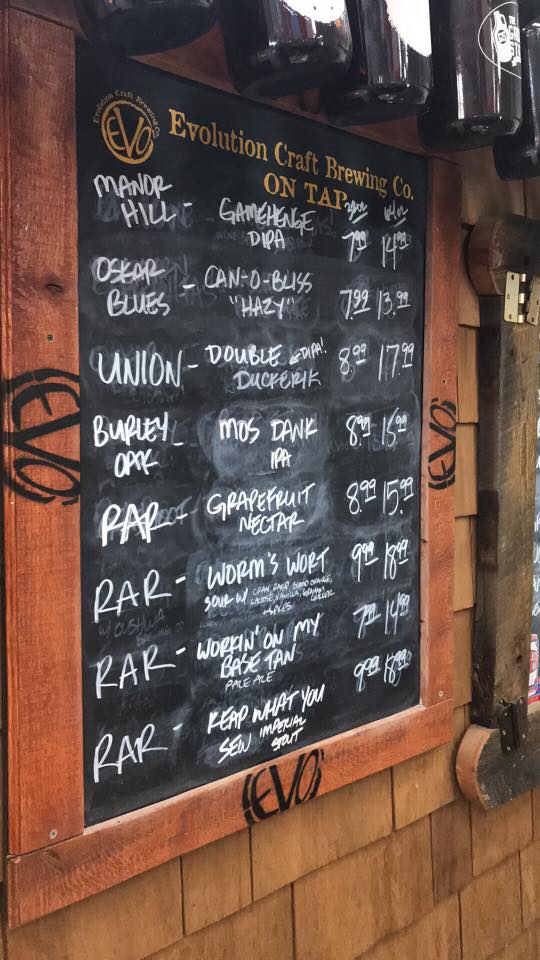 THE
Evolution Craft Brewing Co.
EVO
Evolution Craft Brewing Co.
ON TAP
32oz 64oz
MANOR HILL - GAMEHENGE DIPA 7.99 14.99
OSKAR BLUES - CAN-O-BLISS "HAZY" 7.99 13.99
UNION - DOUBLE DIPA! DUCKERIK 8.99 17.99
BURLEY OAK - MOS DANK IPA 8.99 15.99
RAR - GRAPEFRUIT NECTAR 8.99 15.99
RAR - WORM'S WORT 9.99 18.99
SOUR W/ CRAN, RASP, BLOOD ORANGE,
LACTOSE, VANILLA, GRAHAM CRACKER
+ SPICES
W/ CUSHWA
BREWING CO
RAR - WORKIN' ON MY BASE TAN 7.99 14.99
PALE ALE
RAR - REAP WHAT YOU SEW IMPERIAL STOUT 9.99 18.99
EVO
EVO
EVO